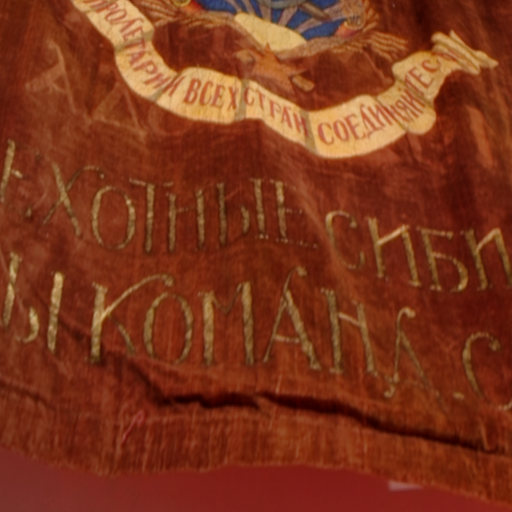 ПРОЛЕТАРИИ ВСЕХ СТРАН СОЕДИНЯЙТЕСЬ
ЕХОТНЫЕ СИБИ
Ы КОМАНД. С